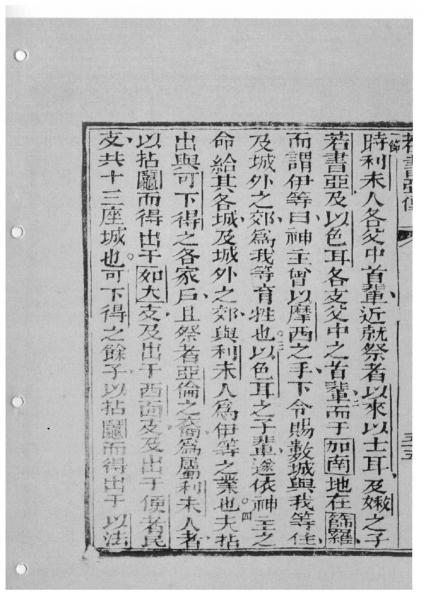 若書亞傳
五五
時利未人各父中首輩近就祭者以來以士耳及嫩之子
若書亞及以色耳各支父中之首輩而于加南地在篩羅
而謂伊等曰神主曾以摩西之手下令賜數城與我等住
及城外之郊為我等育牲也以色耳之子輩遂依神主之
命給其各城及城外之郊與利未人為伊等之業也夫拈
出與可下得之各家戶且祭者亞倫之裔為屬利未人者
以拈鬮而得出于如大支及出于西面支及出于便者民
支共十三座城也可下得之餘子以拈鬮而得出于以法